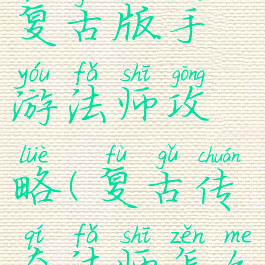 复古版手
yóu fǎ shī gōng
游法师攻
lüè fù gǔ chuán
略(复古传
qí fǎ shī zěn me
奇法师怎么